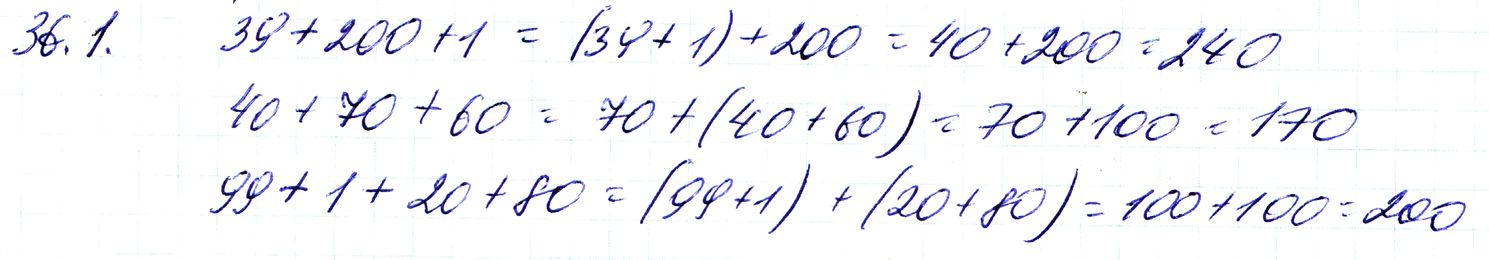 36.1. 39+200+1 = (39+1)+200 = 40+200 = 240
40+70+60 = 70+(40+60) = 70+100 = 170
99+1+20+80 = (99+1)+(20+80) = 100+100 = 200